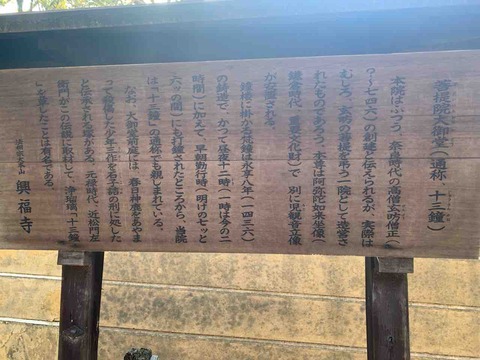 菩提院大御堂(通称 十三鐘)
本院はふつう、奈良時代の高僧玄昉僧正(
?〜七四六)の創建と伝えられるが、実際は
むしろ、玄昉の菩提を弔う一院として造営さ
れたものであろう。本尊は阿弥陀如来坐像(
鎌倉時代、重要文化財)で、別に児観音立像
が安置される。
鐘楼に掛かる梵鐘は永享八年(一四三六)
の鋳造で、かつて昼夜十二時(一時は今の二
時間)に加えて、早朝勤行時(明けの七ツと
六ツの間)にも打鐘されたところから、当院
は「十三鐘」の通称でも親しまれている。
なお、大御堂前庭には、春日神鹿をあやま
って殺傷した少年三作を石子詰の刑に処した
と伝承される塚がある。元禄時代、近松門左
衛門がこの伝説に取材して、浄瑠璃「十三鐘
」を草したことは有名である。
法相宗大本山 興福寺